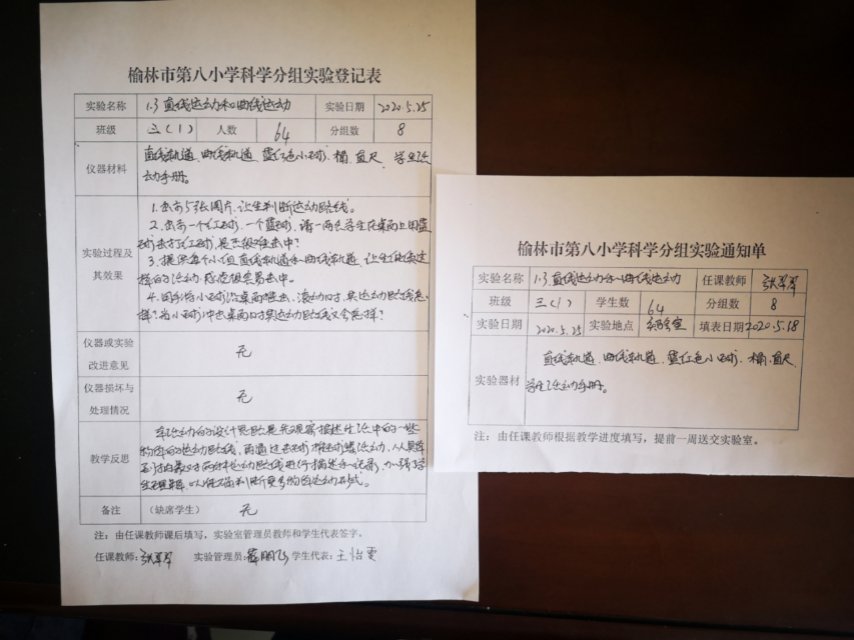 榆林市第八小学科学分组实验登记表
实验名称 1.3 直线运动和曲线运动 实验日期 2020.5.25
班级 三(1) 人数 64 分组数 8
仪器材料 直线轨道、曲线轨道、蓝红色小球、桶、直尺、学生活
动手册。
实验过程及其效果
1.出示5张图片,让生判断运动路线。
2.出示一个红球、一个蓝球,请一两名学生在桌面上用蓝
球去打红球,是否很难击中?
3.提供每个小组直线轨道和曲线轨道,让生
容易击中。
4.用手将小球沿桌面推出,滚动时,其运动路线怎
样?当小球冲出桌面时其运动路线又会怎样?
仪器或实验改进意见 无
仪器损坏与处理情况 无
教学反思
本活动的设计思路是先观察描述生活中的一些
物体的运动路线,再通过击球、推球等活动,
对两种运动路线进行描述和记录,加强学
生理解,以便正确判断更多物体的运动形式。
备注 (缺席学生) 无
注:由任课教师课后填写,实验室管理员教师和学生代表签字。
任课教师:张翠翠 实验管理员: 学生代表:王怡雯
榆林市第八小学科学分组实验通知单
实验名称 1.3 直线运动和曲线运动 任课教师 张翠翠
班级 三(1) 学生数 64 分组数 8
实验日期 2020.5.25 实验地点 实验室 填表日期 2020.5.18
实验器材 直线轨道、曲线轨道、蓝红色小球、桶、直尺、
学生活动手册。
注:由任课教师根据教学进度填写,提前一周送交实验室。